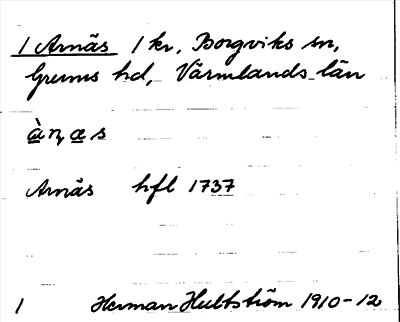 1 Arnäs 1 kr, Borgviks sn,
Grums hd, Värmlands län
à̲ɳæ̲s
Arnäs hfl 1737
1 Herman Hultström 1910-12